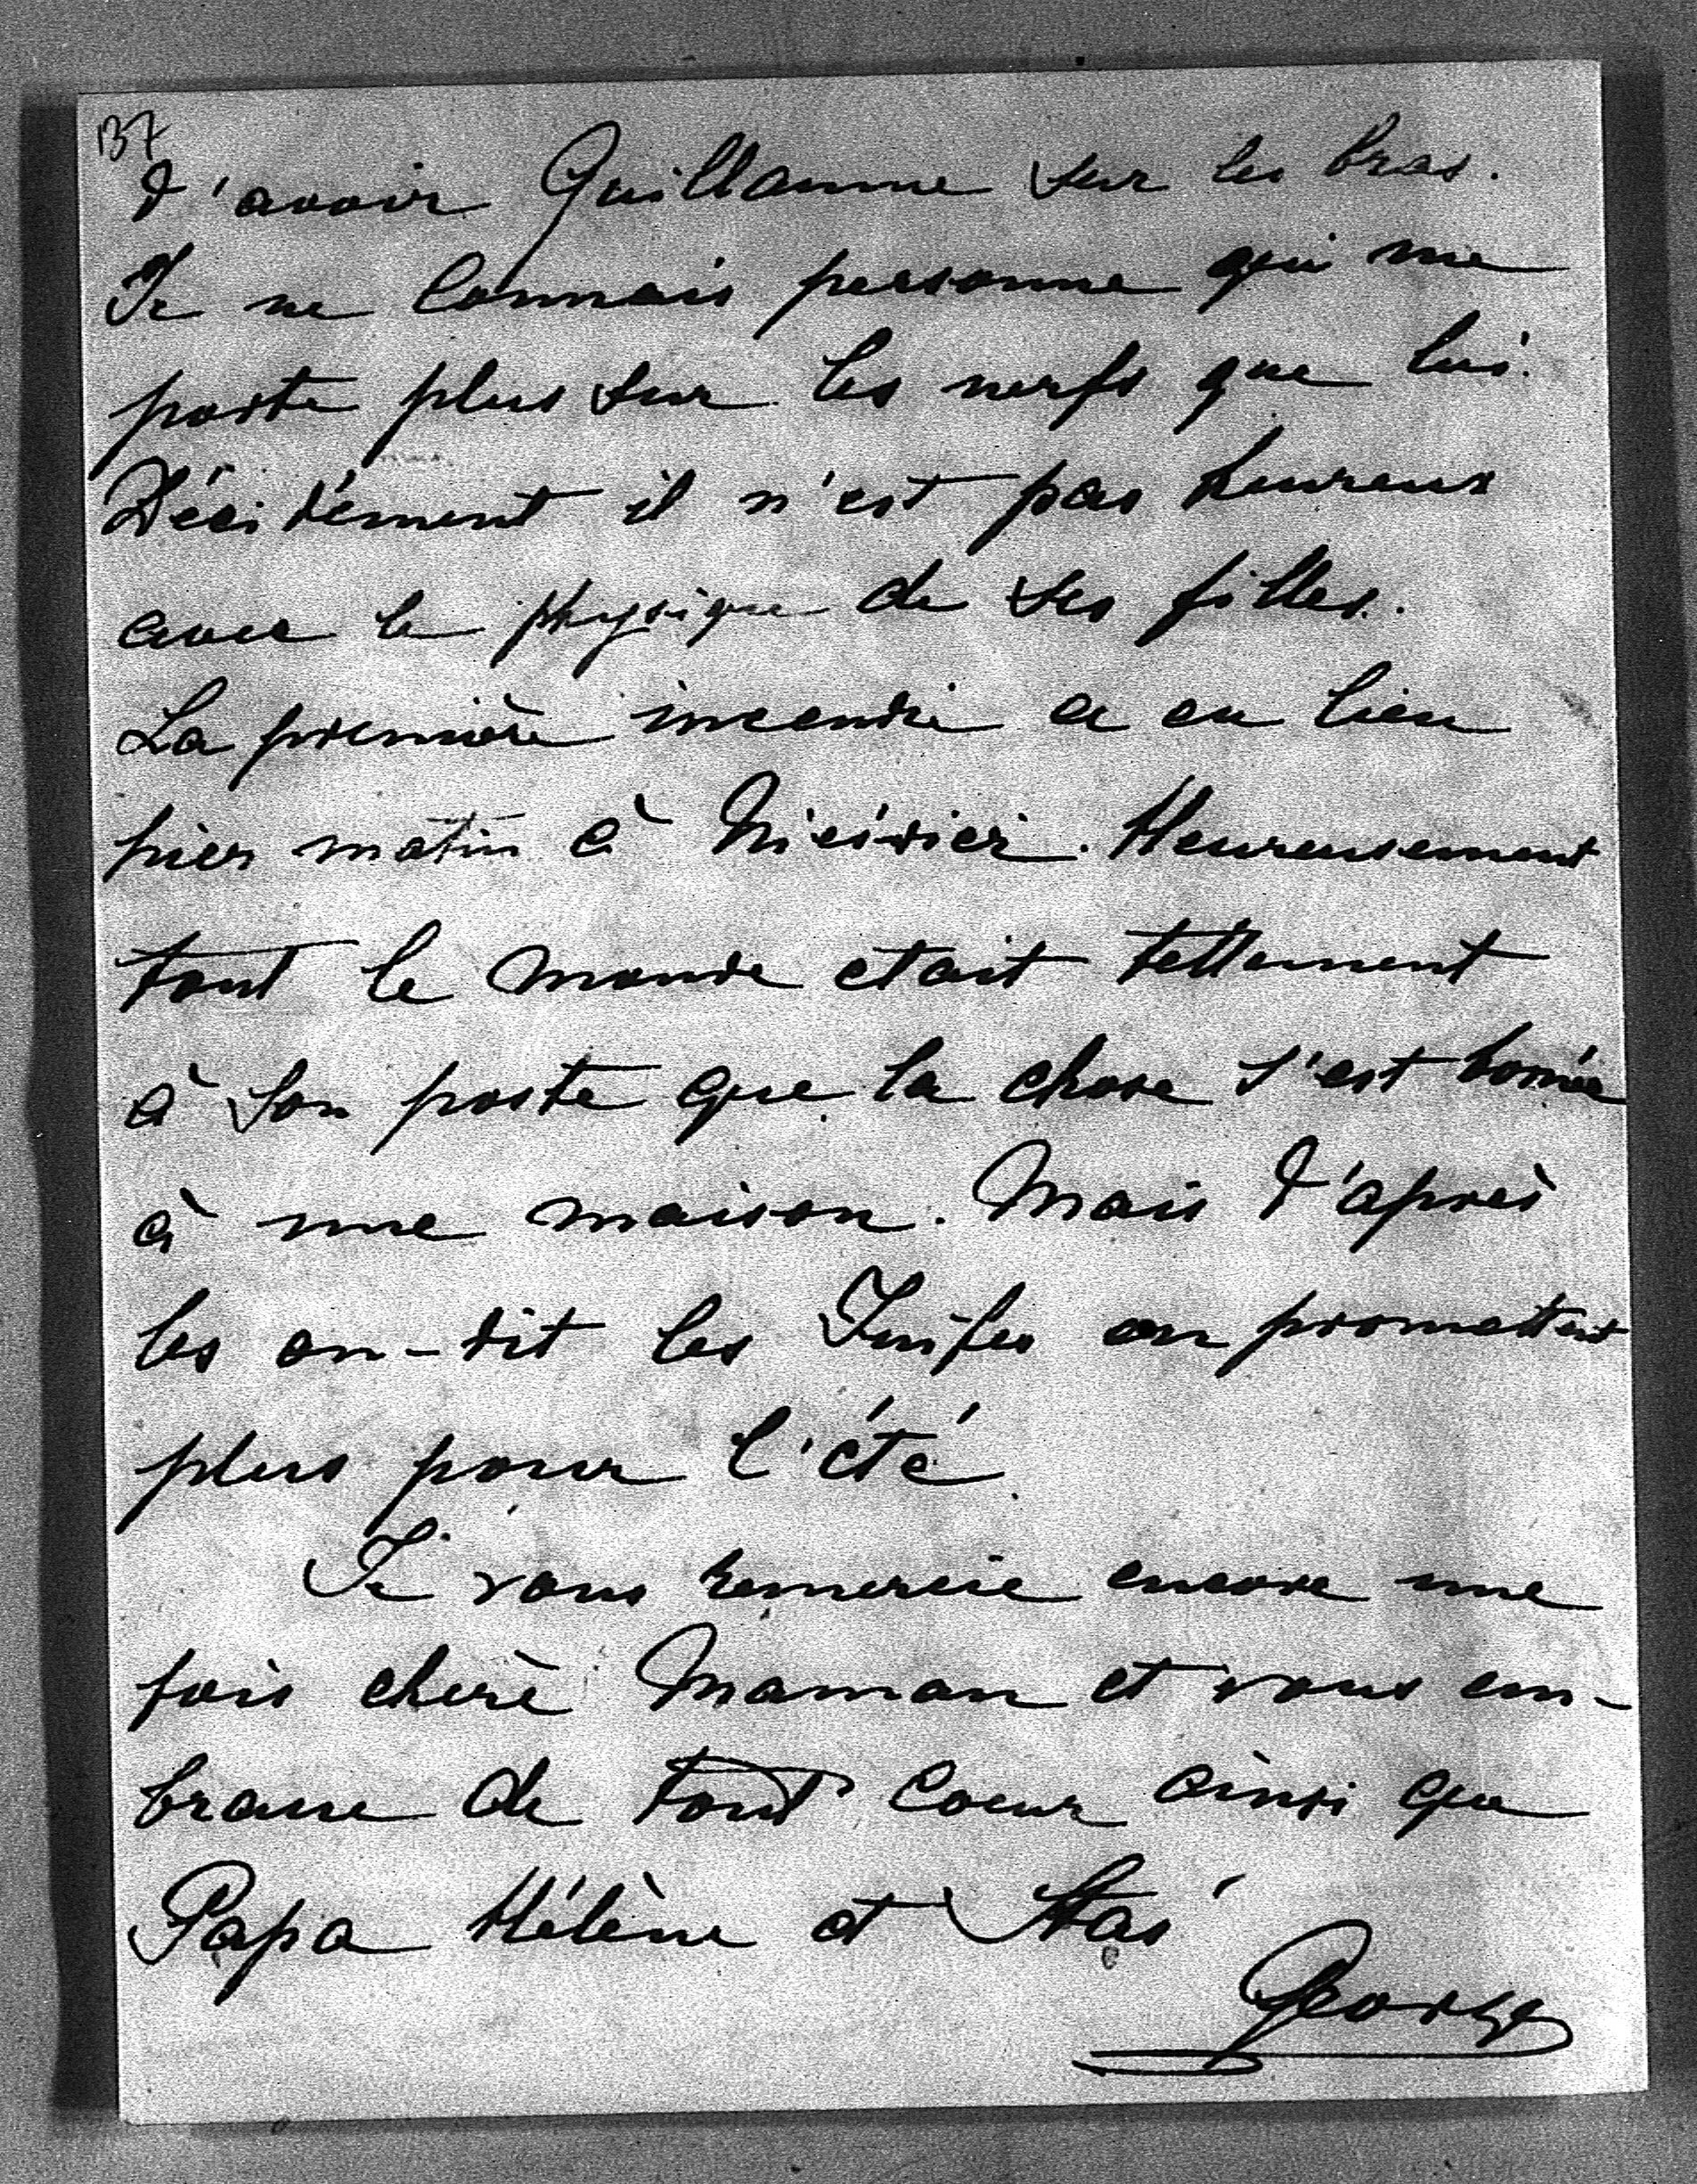 137
d'avoir Guillaume sur les bras.
Je ne connais personne qui me
porte plus sur les nerfs que lui.
Décidément il n'est pas heureux
avec le physique de ses filles.
La première incendie a eu lieu
hier matin à Nieśvież. Heureusement
tout le monde etait tellement
à son poste que la chose s'est bornée
à une maison. Mais d'après
les on-dit les Juifs en promettent
plus pour l'été.
Je vous remercie encore une
fois cherè Maman et vous em-
brasse de tout coeur ainsi que
Papa Hélène et Staś
George